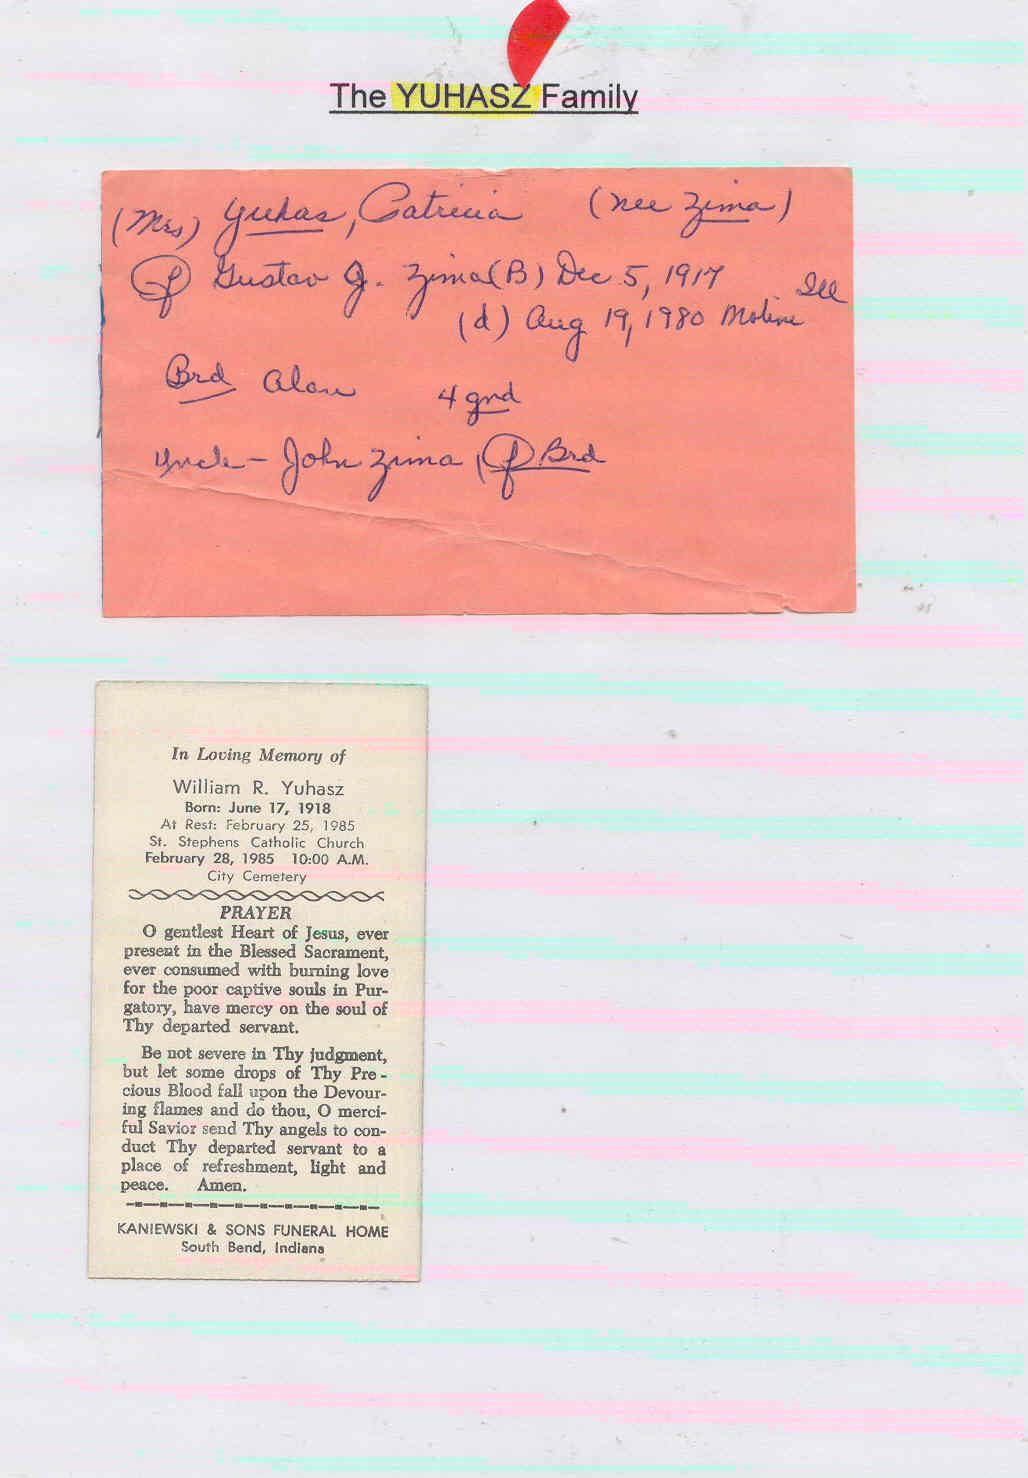 The YUHASZ Family
(Mrs) Yuhas, Patricia (nee Zima)
f Gustav J. Zima (B) Dec 5, 1917
Ill
(d) Aug 19, 1980 Moline
Brd Alan 4 grd
Uncle - John Zima, f Brd
In Loving Memory of
William R. Yuhasz
Born: June 17, 1918
At Rest: February 25, 1985
St. Stephens Catholic Church
February 28, 1985 10:00 A.M.
City Cemetery
PRAYER
O gentlest Heart of Jesus, ever
present in the Blessed Sacrament,
ever consumed with burning love
for the poor captive souls in Pur-
gatory, have mercy on the soul of
Thy departed servant.
Be not severe in Thy judgment,
but let some drops of Thy Pre-
cious Blood fall upon the Devour-
ing flames and do thou, O merci-
ful Savior send Thy angels to con-
duct Thy departed servant to a
place of refreshment, light and
peace. Amen.
KANIEWSKI & SONS FUNERAL HOME
South Bend, Indiana